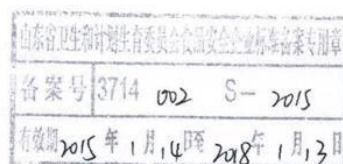 山东省卫生和计划生育委员会食品安全企业标准备案专用章
备案号 3714 002 S- 2015
有效期 2015 年 1 月 14 日至 2018 年 1 月 13 日